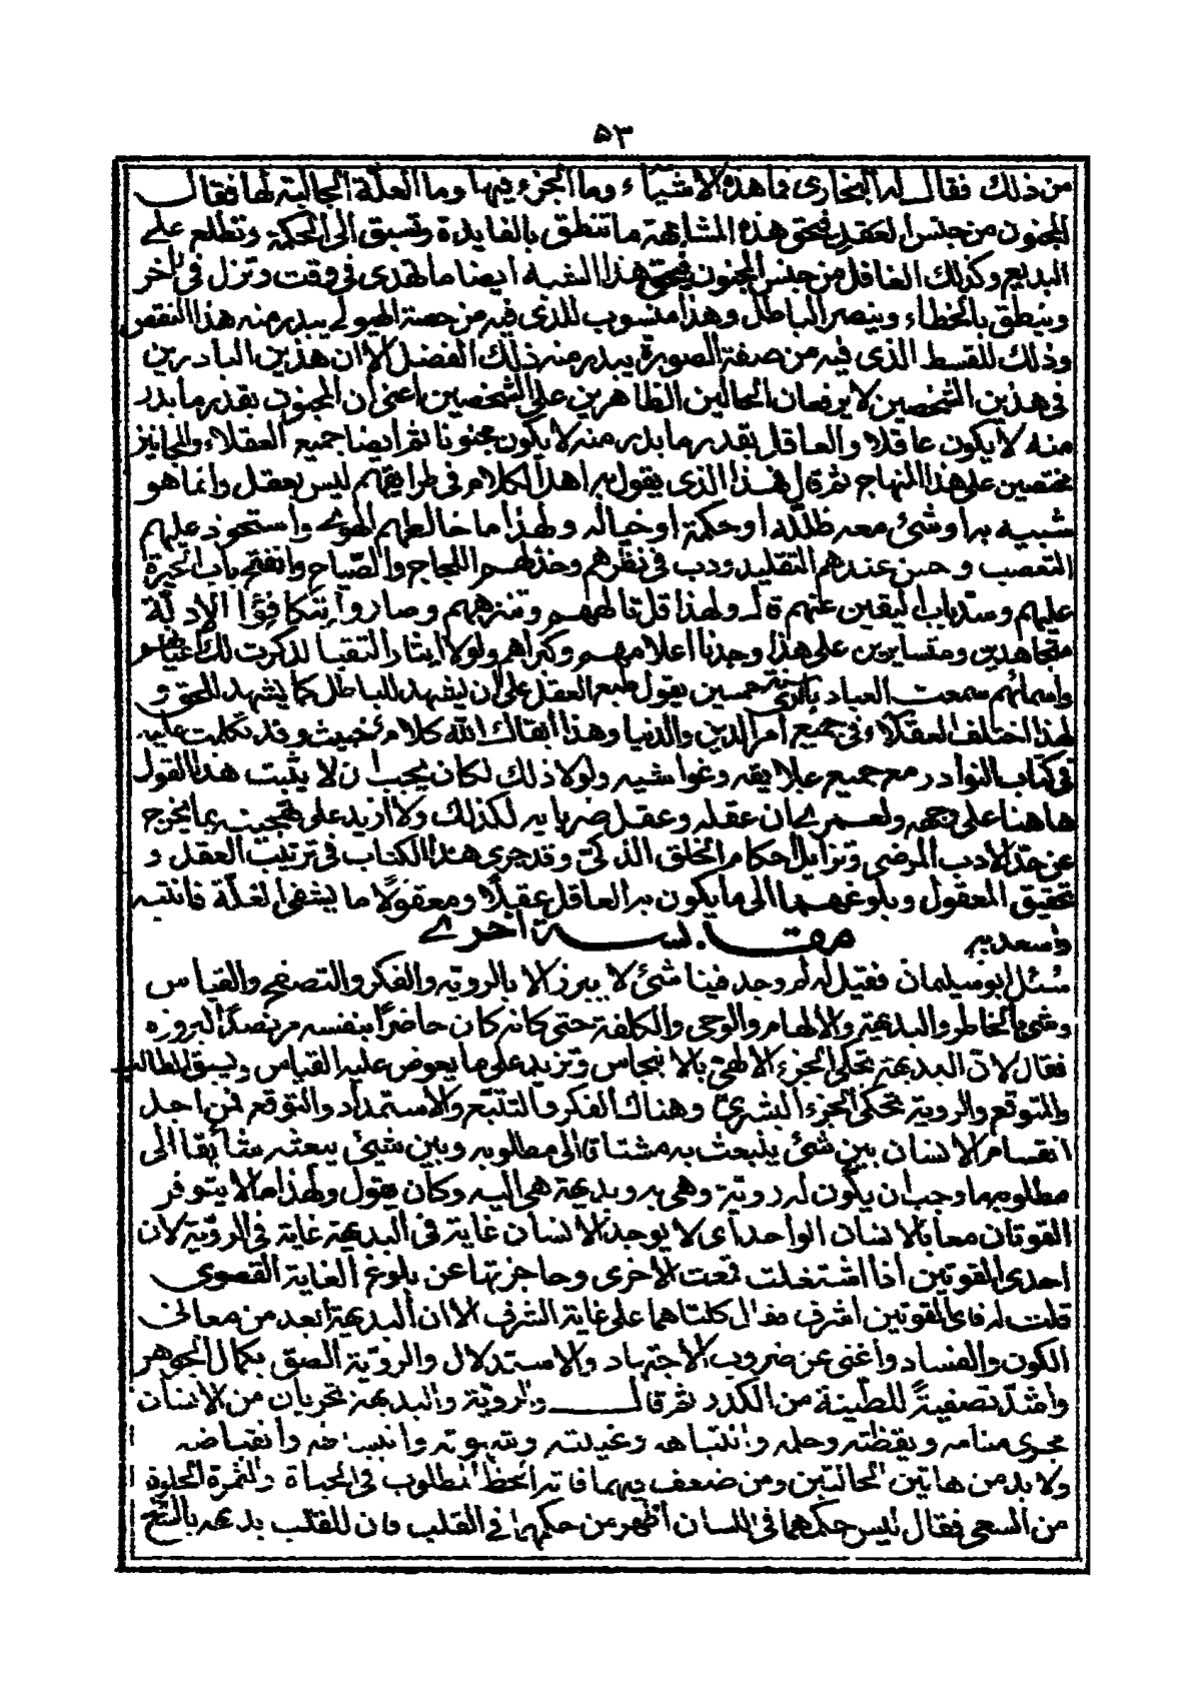 ۵۳
من ذلك فقال له البخارى فما هذه الاشياء وما الجزء فيها وما العلّة الجالبة لها فقال
المجنون من جنس العقد فبحق هذه المشابهة ما تنطق بالفايدة وتسبق الى الحكمة وتطلع على
البديع وكذلك العاقل من جنس المجنون فبحق هذا الشبه ايضا ما يهذى فى وقت وتزل فى آخر
وينطق بالخطاء وينصر الباطل وهذا منسوب للذى فيه من حصة الهيولے يبدر منه هذا النقص
وذلك للقسط الذى فيه من صفة الصورة يبدر منه ذلك الفضل الا ان هذين البادرين
فى هذين الشخصين لا يرفعان الحالين الظاهرين على الشخصين اعنى ان المجنون بقدر ما بدر
منه لا يكون عاقلا والعاقل بقدر ما بدر منه لا يكون مجنونا ثم ايضا جميع العقلاء والمجانين
مختصين على هذا النهاج ثم قال فهذا الذى يقول به اهل الكلام فى طرايقهم ليس بعقل وانما هو
شبيه به او شئ معه ظلّه او حكمة او خياله ولهذا ما خالطهم الهوے واستحوذ عليهم
التعصب وحسن عندهم التقليد ودب فى نظرهم وخذلهم اللجاج والصّياح وانفتح باب الحيرة
عليهم وسدّ باب اليقين عنهم قال ولهذا قل تالههم وتنزههم وصاروا بتكافؤ الادلّة
متجاهدين ومتسايرين على هذا وجدنا اعلامهم وكبراهم ولولا ايثار التقيا لذكرت لك اعيانهم
واسمائهم سمعت العباد بالرى سنة خمسين يقول طبع العقل على ان يشهد للباطل كما يشهد للحق و
لهذا اختلف العقلاء فى جميع امر الدين والدنيا وهذا ابقاك الله كلام خبيث وقد تكلمت عليه
فى كتاب النوادر مع جميع علايقه وغواشيه ولولا ذلك لكان يجب ان لا يثبت هذا القول
هاهنا على وجهه ولعمرے ان عقله وعقل ضربايه لكذلك ولا ازيد على تهجينه بما يخرج
عن حدّ الادب المرضى وتزايل احكام الخلق الذكى وقد جرى هذا الكتاب فى ترتيب العقل و
تحقيق المعقول وبلوغهما الى ما يكون به العاقل عقلًا ومعقولًا ما يشفى العلّة فانتبه
واسعد به
مقابسة اخرے
سُئل ابو سليمان فقيل له لم وجد فينا شئ لا يبرز الا بالرويّة والفكر والتصفح والقياس
وشئ بالخاطر والبديهة والالهام والوحى والكلفة حتى كانه كان حاضرًا بنفسه مرصّدًا لبروزه
فقال لان البديهة تحكى الجزء الالهى بالانبجاس وتزيد على ما يعوض عليه القياس ويسبق الطالب
والتوقع والروية تحكى الجزء البشرىّ وهناك الفكر والتتبّع والاستمداد والتوقع فمن اجل
انقسام الانسان بين شئ ينبعث به مشتاقا الى مطلوبه وبين شيئ يبعثه شائقا الى
مطلوبهما وجب ان يكون له رويّة وهى به وبديهة هى اليه وكان يقول ولهذا ما لا يتوفر
القوتان معا بالانسان الواحد اى لا يوجد الانسان غاية فى البديهة غاية فى الرويّة لان
احدى القوتين اذا اشتغلت قمعت الاخرى وحاجزتها عن بلوغ الغاية القصوى
قلت له فاى القوتين اشرف فقال كلتاهما على غاية الشرف الا ان البديهة ابعد من معانى
الكون والفساد واغنى عن ضروب الاجتهاد والاستدلال والرويّة الصق بكمال الجوهر
واشدّ تصفيةً للطّينة من الكدر ثم قال والرويّة والبديهة تجريان من الانسان
مجرى منامه ويقظته وحلمه وانتباهه وغيبته وشهوته وانبساطه وانقباضه
ولا بد من هاتين الحالتين ومن ضعف فيهما فاته الحظ المطلوب فى الحياة والثمرة الحلوة
من السعى فقال ليس حكمهما فى اللسان اظهر من حكمهما فى القلب فان للقلب بديهة بالسّنح